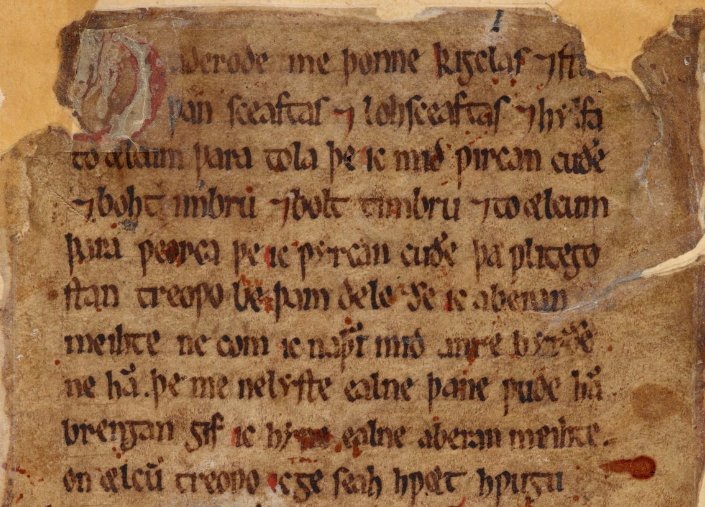 Gaderode me þonne kigclas ⁊ stu
þan sceaftas ⁊ lohsceaftas ⁊ hylfa
to ælcum þara tola þe ic mid ƿircan cuðe
⁊ boht imbrū ⁊ bolt timbru ⁊ to ælcum
þara ƿeorca þe ic ƿyrcan cuðe þa ƿlitego
stan treoƿo be þam dele ðe ic aberan
meihte ne com ic naƿer mid anre byrðe
ne hā þe me ne lyste ealne þane ƿude hā
brengan gif ic hyne ealne aberan meihte.
on ælcū treoƿo ic ge seah hƿæt hƿugu